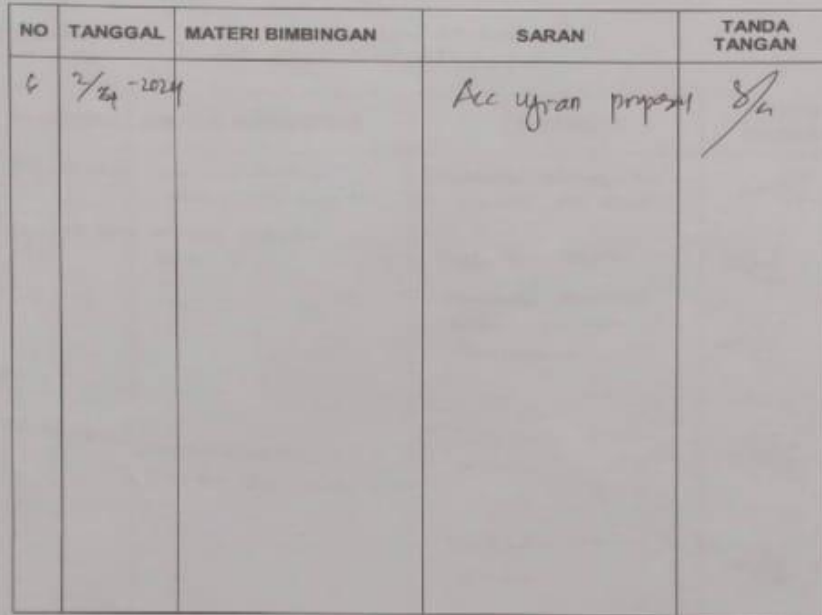 NO TANGGAL MATERI BIMBINGAN SARAN TANDA TANGAN
6 -2024 Acc ujian proposal